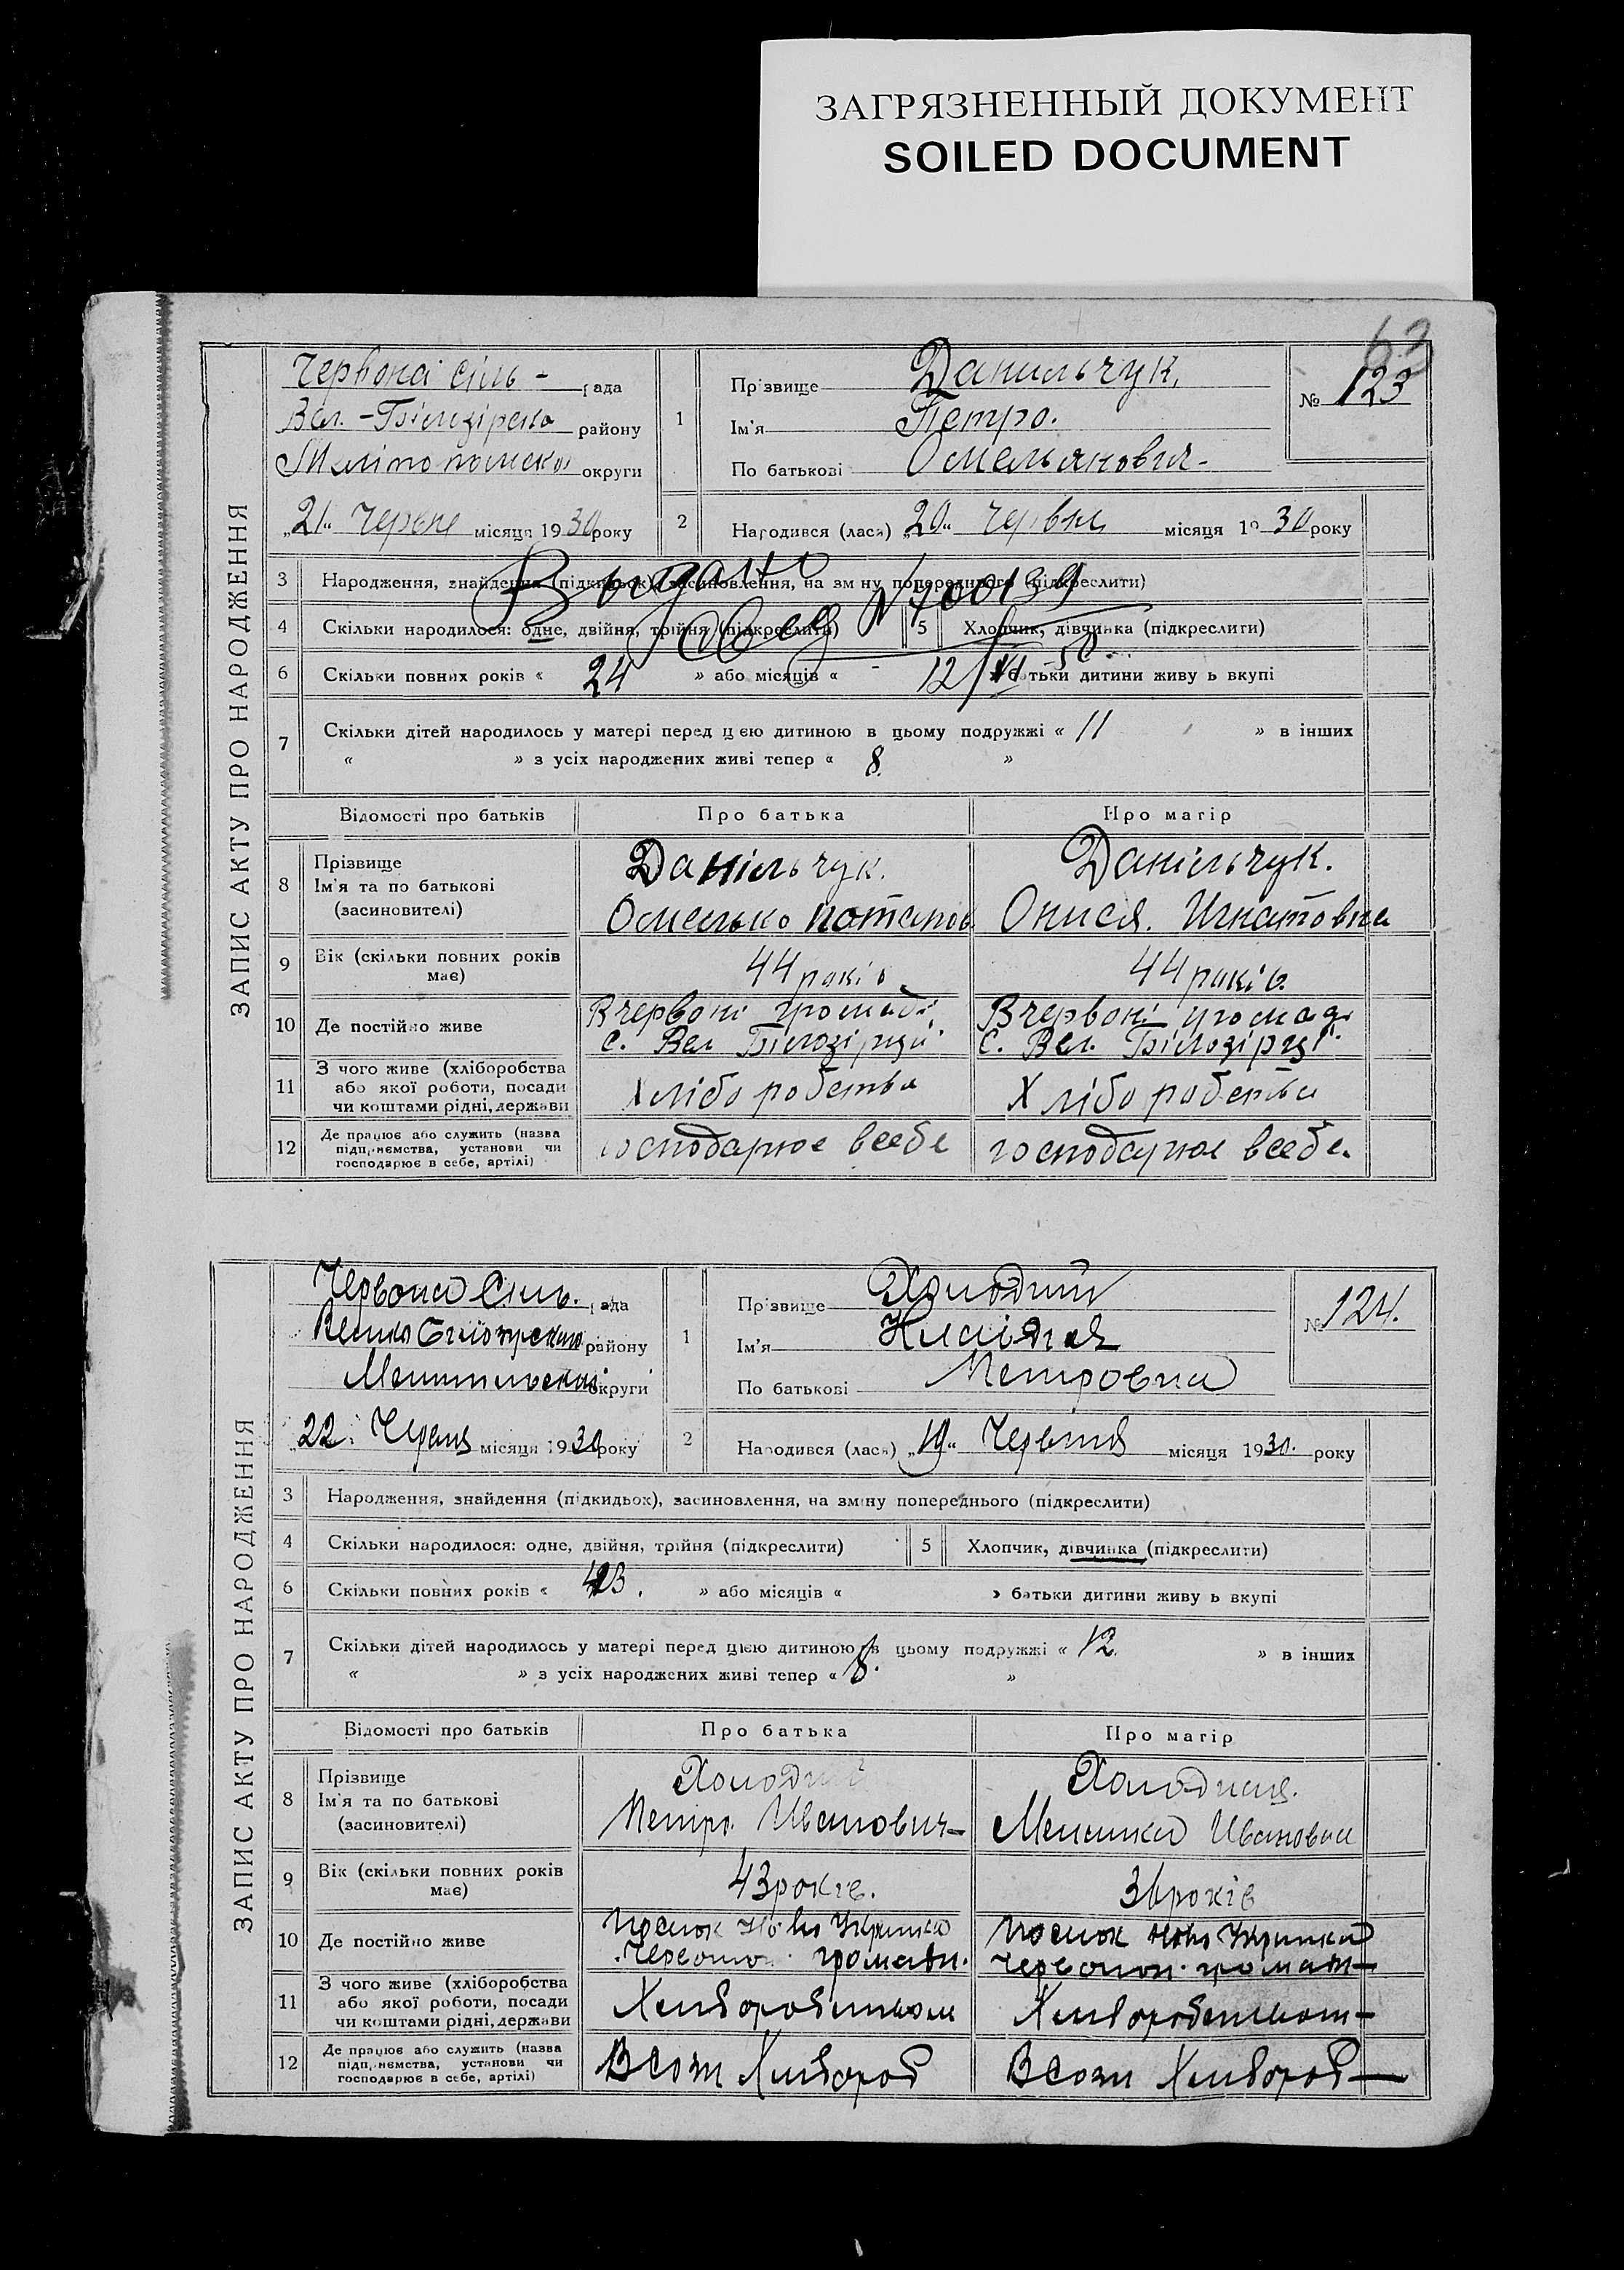 ЗАГРЯЗНЕННЫЙ ДОКУМЕНТ
SOILED DOCUMENT
63
ЗАПИС АКТУ ПРО НАРОДЖЕННЯ
Червона сіль - рада
Вел.-Білозірсько району
округи
„21" Червня місяця 1930 року
1
Прізвище Данильчук,
Ім'я Петро.
По батькові Омельянович-
№ 123
2 Народився (лася) „20" Червня місяця 1930 року
3 Народження, знайдення (підкидьок), засиновлення, на зміну попереднього (підкреслити)
Выдано
№ 00139
4 Скільки народилося: одне, двійня, трійня (підкреслити) 5 Хлопчик, дівчинка (підкреслити)
6 Скільки повних років « 24 » або місяців « » батьки дитини живуть вкупі
12/VI 50
7 Скільки дітей народилось у матері перед цією дитиною в цьому подружжі « 11 » в інших
« » з усіх народжених живі тепер « 8 »
Відомості про батьків Про батька Про матір
8 Прізвище Данільчук. Данільчук.
Ім'я та по батькові
(засиновителі) Омелько Потапов Онися. Игнатовна
9 Вік (скільки повних років має) 44 років. 44 років.
10 Де постійно живе В червоні громаді В червоні громаді
с. Вел Білозірци с. Вел. Білозірці
11 З чого живе (хліборобства Хліборобства Хліборобства
або якої роботи, посади
чи коштами рідні, держави
12 Де працює або служить (назва господарює всебе господарює всебе.
підприємства, установи чи
господарює в себе, артілі)
ЗАПИС АКТУ ПРО НАРОДЖЕННЯ
Червона Сіль. рада
району
округи
„22" Червня місяця 1930 року
1
Прізвище Холодний
Ім'я
По батькові Петровна
№ 124.
2 Народився (лася) „19" Червня місяця 1930. року
3 Народження, знайдення (підкидьок), засиновлення, на зміну попереднього (підкреслити)
4 Скільки народилося: одне, двійня, трійня (підкреслити) 5 Хлопчик, дівчинка (підкреслити)
6 Скільки повних років « » або місяців « » батьки дитини живуть вкупі
7 Скільки дітей народилось у матері перед цією дитиною в цьому подружжі « 12 » в інших
« » з усіх народжених живі тепер « 8. »
Відомості про батьків Про батька Про матір
8 Прізвище Холодний Холодная.
Ім'я та по батькові
(засиновителі) Петро Иванович- Ивановна
9 Вік (скільки повних років має) 43 років. 36 років
10 Де постійно живе Ново Украинка Ново Украинка
громади. громади
11 З чого живе (хліборобства
або якої роботи, посади
чи коштами рідні, держави
12 Де працює або служить (назва
підприємства, установи чи
господарює в себе, артілі)